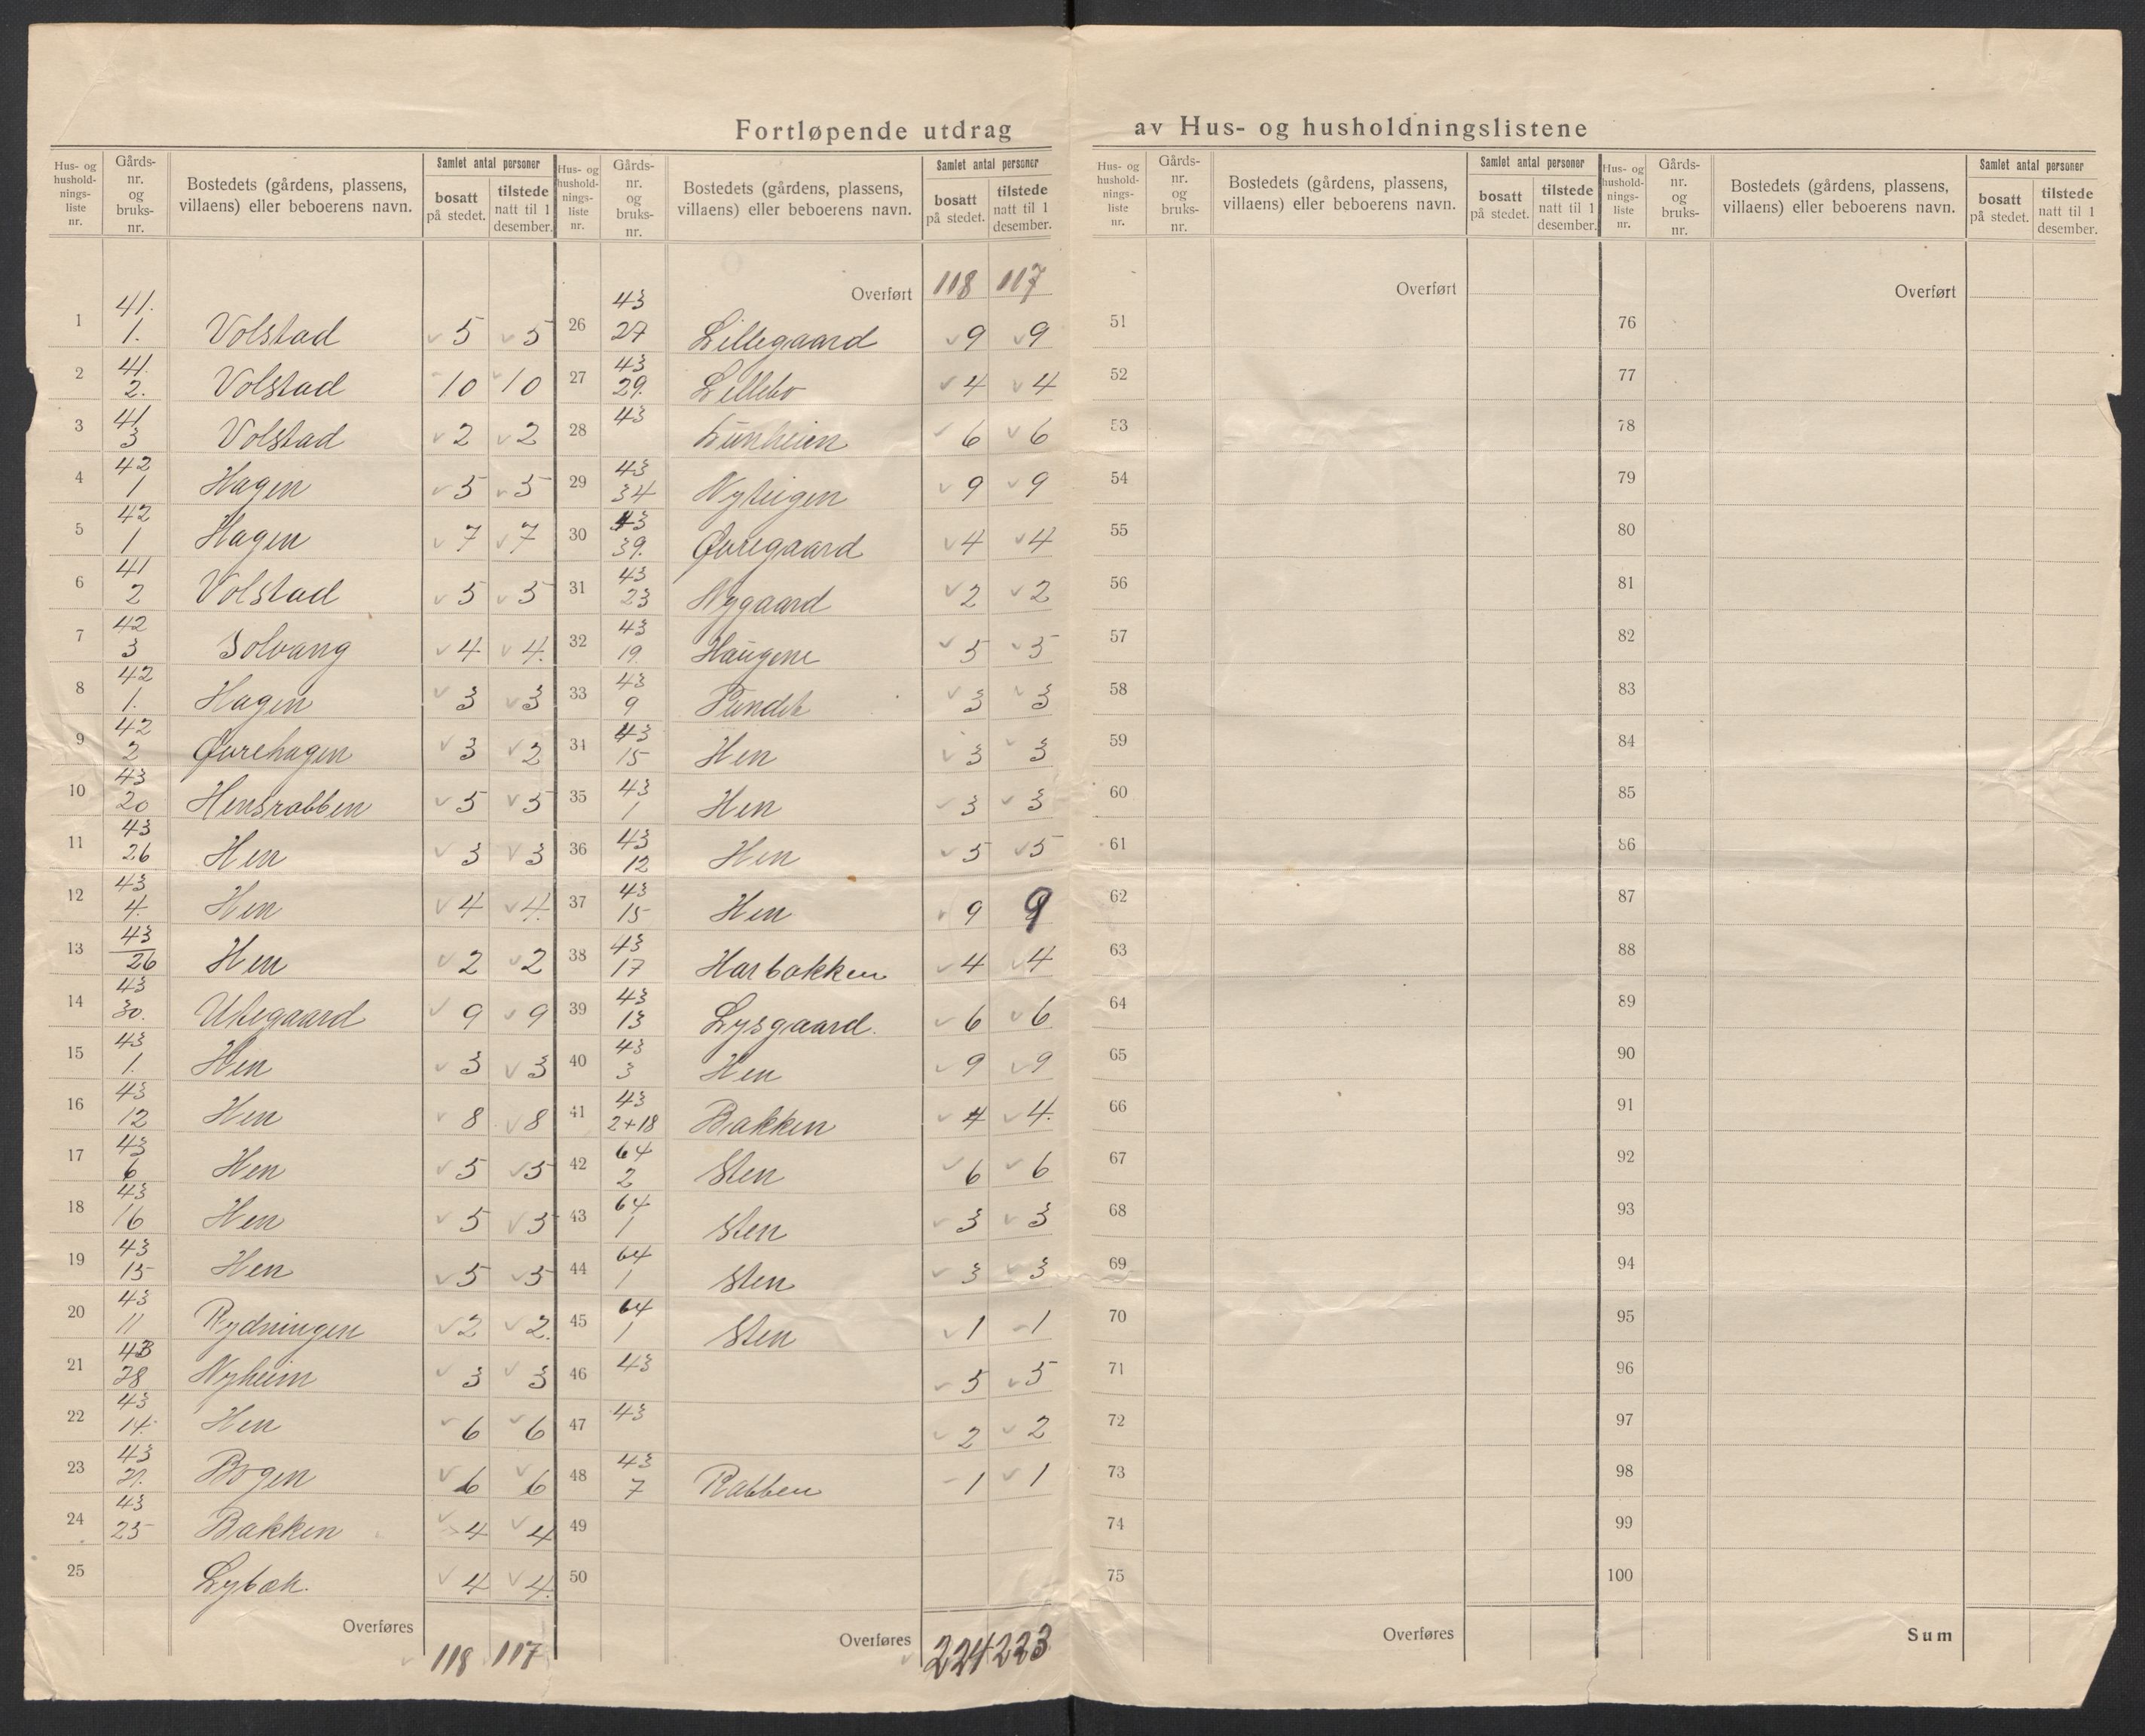 Fortløpende utdrag av Hus- og husholdningslistene
Hus- og husholdnings-liste nr. | Gårds-nr. og bruks-nr. | Bostedets (gårdens, plassens, villaens) eller beboerens navn. | Samlet antal personer | bosatt på stedet. | tilstede natt til 1 desember.
1 41. 1. Volstad 5 5
2 41. 2. Volstad 10 10
3 41 3 Volstad 2 2
4 42 1 Hagen 5 5
5 42 1 Hagen 7 7
6 41 2 Volstad 5 5
7 42 3 Solvang 4. 4.
8 42 1. Hagen 3 3
9 42 2 Øvrehagen 3 2
10 43 20 Hensrabben 5 5
11 43 26 Hen 3 3
12 43 4. Hen 4 4.
13 43 26 Hen 2 2
14 43 30. Utegaard 9 9
15 43 1. Hen 3 3
16 43 12 Hen 8 8
17 43 6 Hen 5 5
18 43 16 Hen 5 5
19 43 15 Hen 5 5
20 43 11 Rydningen 2 2.
21 43 28 Nyheim 3 3
22 43 14. Hen 6 6
23 43 Bogen 6 6
24 43 25 Bakken 4 4
25 Lybæk. 4 4.
Overføres 118 117
Hus- og husholdnings-liste nr. | Gårds-nr. og bruks-nr. | Bostedets (gårdens, plassens, villaens) eller beboerens navn. | Samlet antal personer | bosatt på stedet. | tilstede natt til 1 desember.
Overført 118 117
26 43 27 Lillegaard 9 9
27 43 29. Lillebo 4 4
28 43 6 6
29 43 34 Nyteigen 9 9
30 43 39. Øvregaard 4 4
31 43 23 Nygaard 2 2
32 43 19. Haugene 5 5
33 43 9 3 3
34 43 15 Hen 3 3
35 43 1 Hen 3 3
36 43 12 Hen 5 5
37 43 15 Hen 9 9
38 43 17 Harbakken 4 4
39 43 13 Lysgaard. 6 6
40 43 3 Hen 9 9
41 43 2+18 Bakken 4 4.
42 64 2 Sten 6 6
43 64 1 Sten 3 3
44 64 1 Sten 3 3
45 64 1 Sten 1 1
46 43 5 5
47 43 2 2
48 43 7 Rabben 1 1
49
50
Overføres 224 223
Hus- og husholdnings-liste nr. | Gårds-nr. og bruks-nr. | Bostedets (gårdens, plassens, villaens) eller beboerens navn. | Samlet antal personer | bosatt på stedet. | tilstede natt til 1 desember.
Overført
51
52
53
54
55
56
57
58
59
60
61
62
63
64
65
66
67
68
69
70
71
72
73
74
75
Overføres
Hus- og husholdnings-liste nr. | Gårds-nr. og bruks-nr. | Bostedets (gårdens, plassens, villaens) eller beboerens navn. | Samlet antal personer | bosatt på stedet. | tilstede natt til 1 desember.
Overført
76
77
78
79
80
81
82
83
84
85
86
87
88
89
90
91
92
93
94
95
96
97
98
99
100
Sum